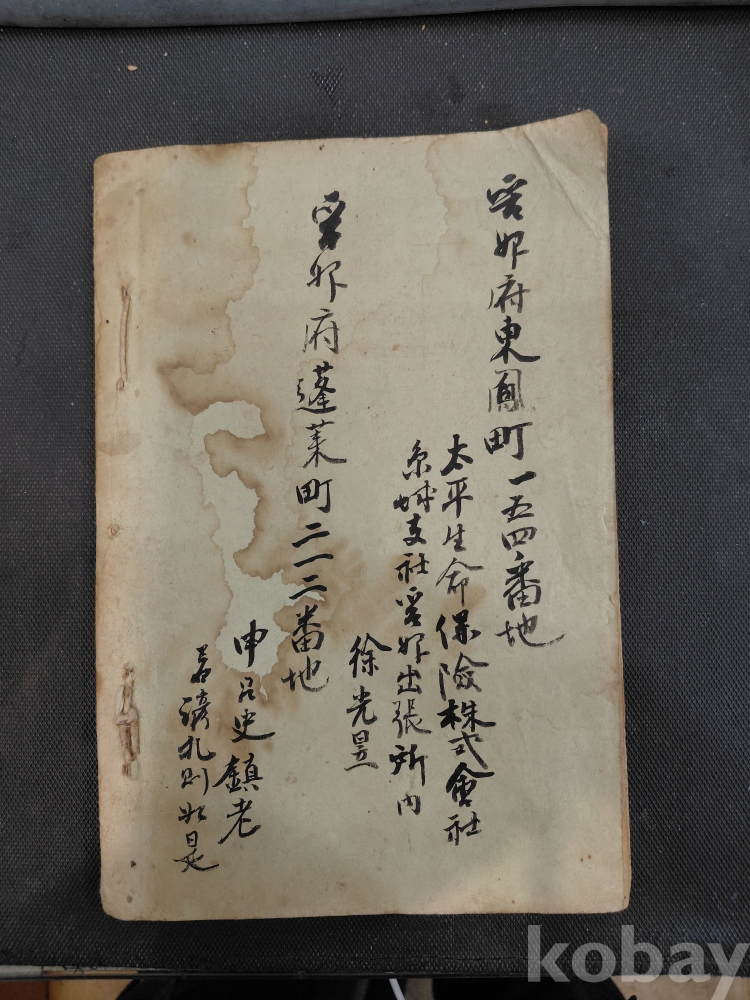 晉州府東鳳町一五四番地
太平生命保險株式會社
京城支社晉州出張所內
徐光昱
晉州府蓬萊町二一二番地
申召史鎮老
則如是
kobay